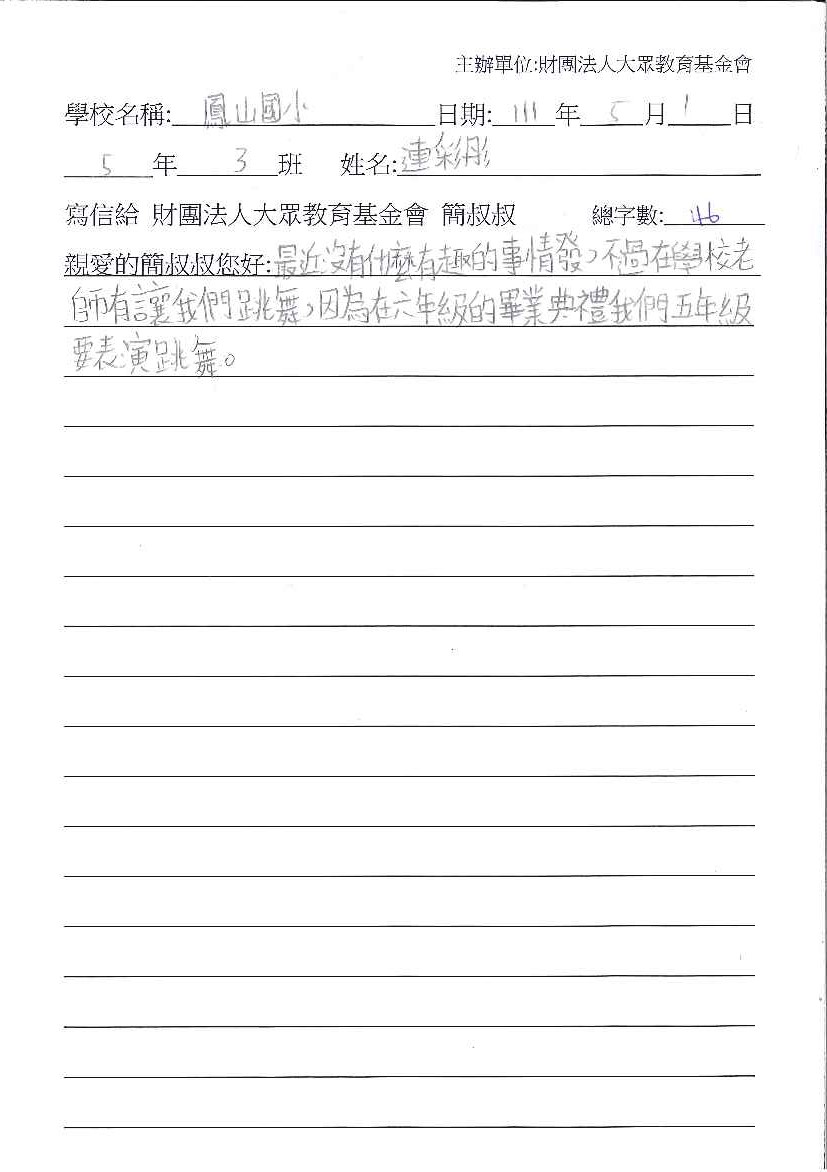 主辦單位:財團法人大眾教育基金會
學校名稱: 鳳山國小 日期: 111 年 5 月 1 日
5 年 3 班 姓名: 連彩彤
寫信給 財團法人大眾教育基金會 簡叔叔 總字數: 46
親愛的簡叔叔您好:最近沒有什麼有趣的事情發,不過在學校老
師有讓我們跳舞,因為在六年級的畢業典禮我們五年級
要表演跳舞。